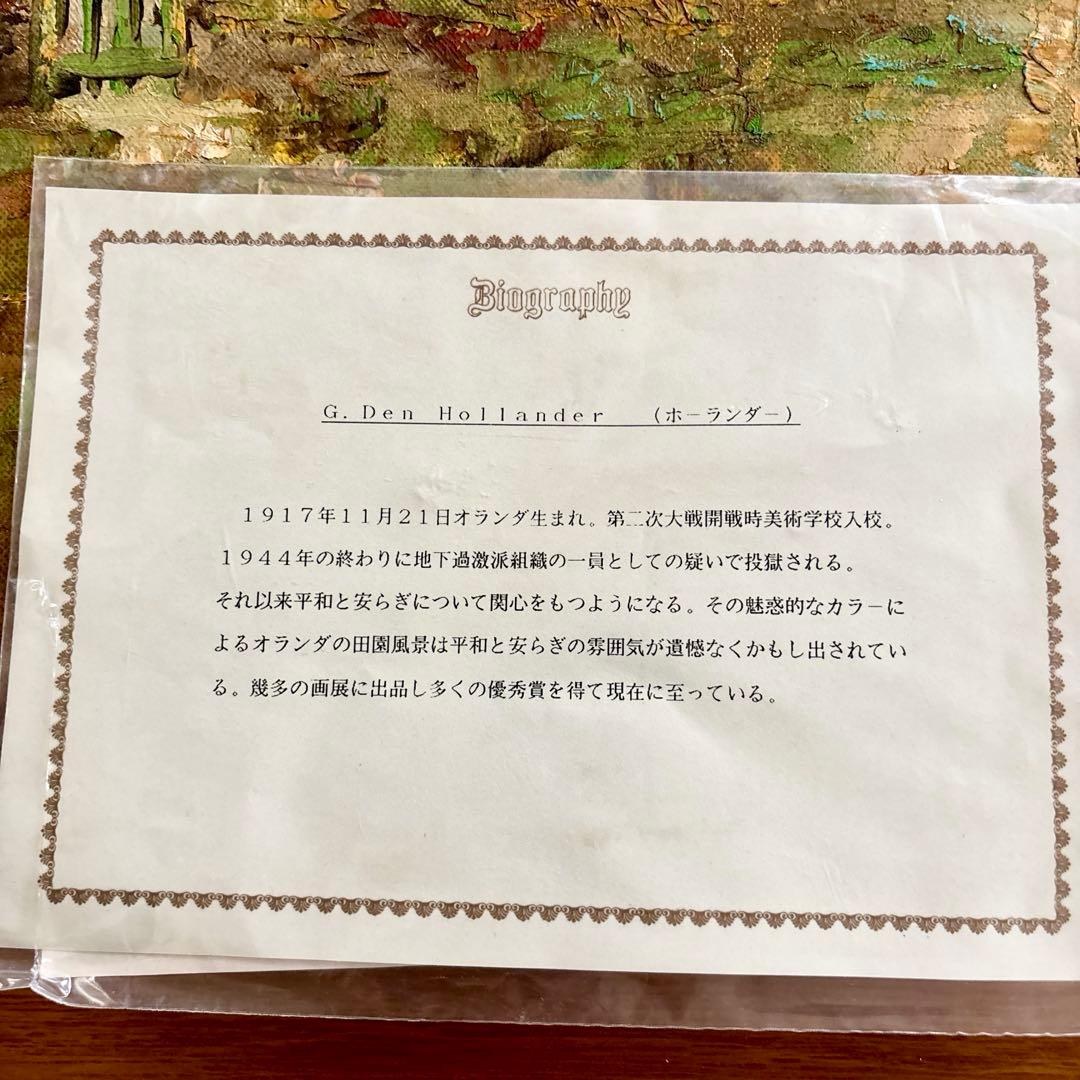 Biography
G. Den Hollander (ホーランダー)
1917年11月21日オランダ生まれ。第二次大戦開戦時美術学校入校。
1944年の終わりに地下過激派組織の一員としての疑いで投獄される。
それ以来平和と安らぎについて関心をもつようになる。その魅惑的なカラーに
よるオランダの田園風景は平和と安らぎの雰囲気が遺憾なくかもし出されてい
る。幾多の画展に出品し多くの優秀賞を得て現在に至っている。